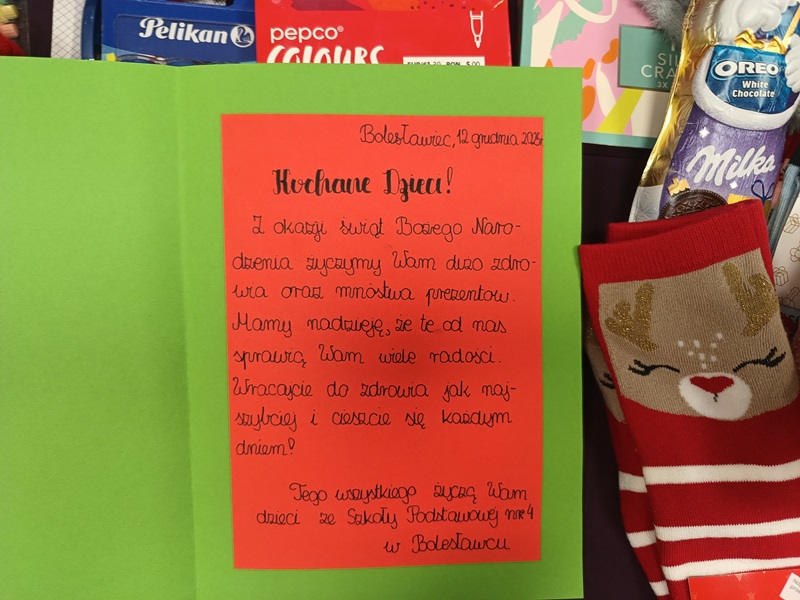 Pelikan
pepco
COLOURS
OREO
White
Chocolate
Milka
Bolesławiec, 12 grudnia 2025r
Kochane Dzieci!
Z okazji świąt Bożego Naro-
dzenia życzymy Wam dużo zdro-
wia oraz mnóstwa prezentów.
Mamy nadzieję, że te od nas
sprawią Wam wiele radości.
Wracajcie do zdrowia jak naj-
szybciej i cieszcie się każdym
dniem!
Tego wszystkiego życzą Wam
dzieci ze Szkoły Podstawowej nr 4
w Bolesławcu